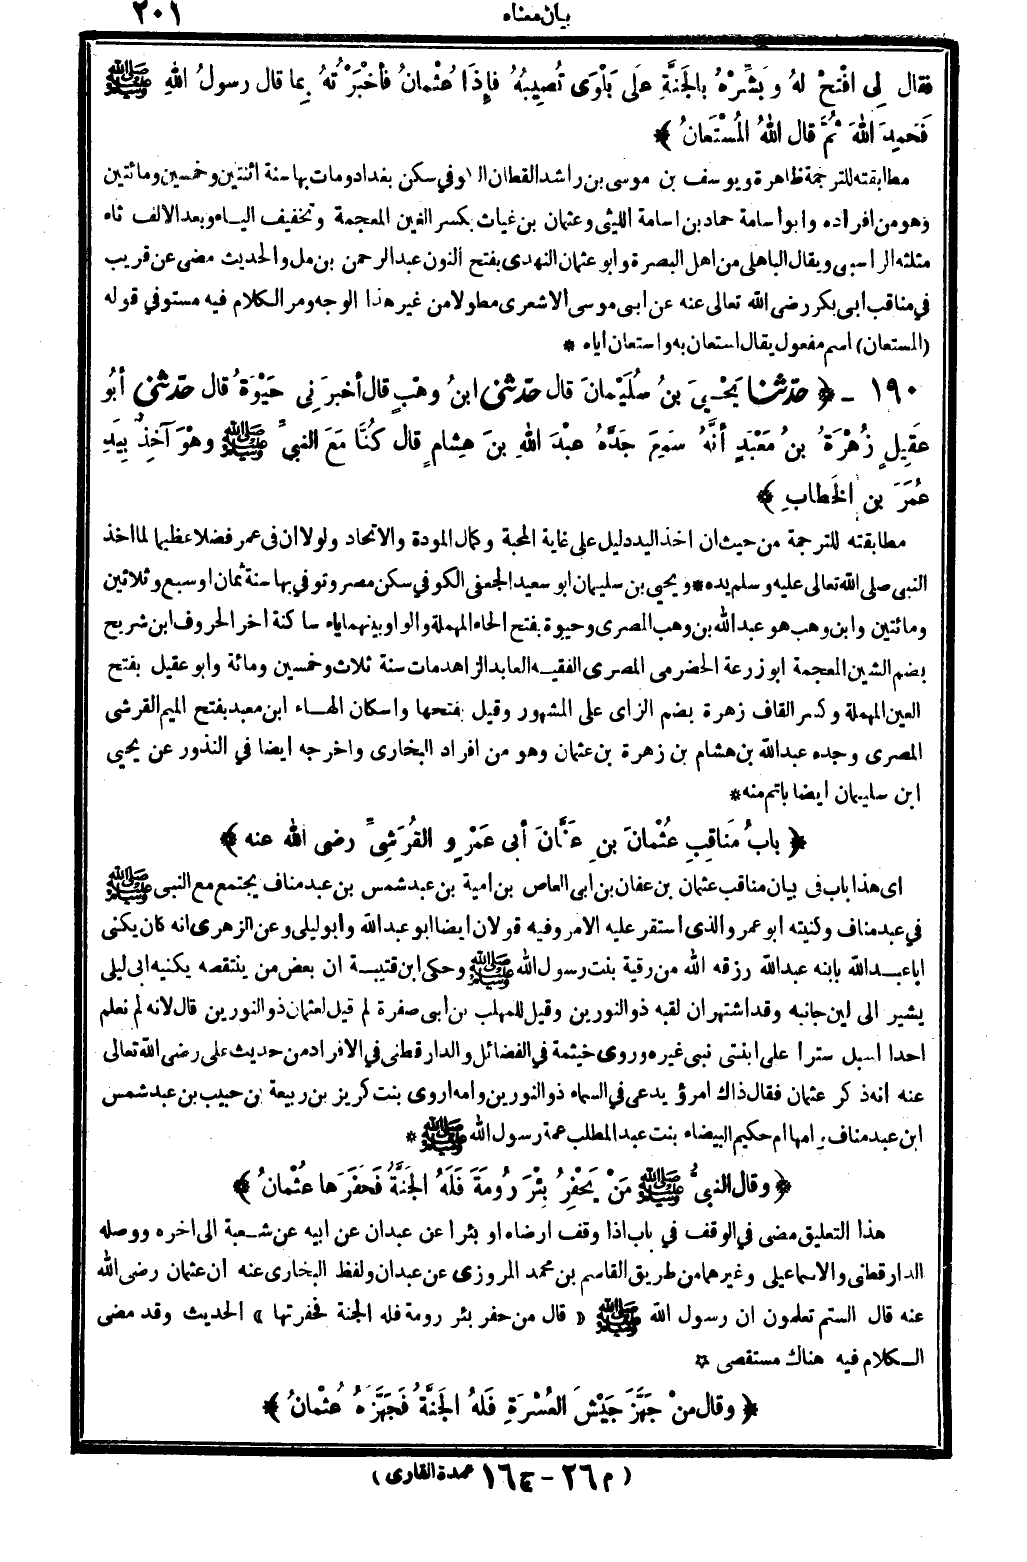 بيان معناه ٢٠١
فقال لِي افْتَحْ لهُ وَبَشِّرْهُ بالجَنَّةِ عَلَى بَلْوَى تُصِيبُهُ فإِذَا عُثْمانُ فأخْبَرْتُهُ بِما قال رسولُ اللهِ ﷺ
فَحَمِدَ اللهَ ثُمَّ قال اللهُ المُسْتَعانُ ﴾
مطابقته للترجمة ظاهرة ويوسف بن موسى بن راشد القطان الكوفي سكن بغداد ومات بها سنة اثنتين وخمسين ومائتين
وهو من افراده وابو أسامة حماد بن اسامة الليثي وعثمان بن غياث بكسر الغين المعجمة وتخفيف الياء وبعد الالف ثاء
مثلثة الراسبي ويقال الباهلي من اهل البصرة وابو عثمان النهدي بفتح النون عبد الرحمن بن مل والحديث مضى عن قريب
في مناقب أبي بكر رضي الله تعالى عنه عن ابي موسى الاشعرى مطولا من غير هذا الوجه ومر الكلام فيه مستوفي قوله
(المستعان) اسم مفعول يقال استعان به واستعان اياه *
١٩٠ - ﴿ حدّثنا يَحْيى بنُ سُلَيْمانَ قال حدّثني ابنُ وهْبٍ قال أخبرَنِي حَيْوَةُ قال حدّثني أبُو
عَقِيلٍ زُهْرَةُ بنُ مَعْبَدٍ أنَّهُ سَمِعَ جَدَّهُ عبْدَ اللهِ بنَ هِشامٍ قال كُنَّا مَعَ النبيِّ ﷺ وهْوَ آخِذٌ بِيَدِ
عُمَرَ بنِ الخَطابِ ﴾
مطابقته للترجمة من حيث ان اخذ اليد دليل على غاية المحبة وكمال المودة والاتحاد ولولا ان في عمر فضلا عظيما لما اخذ
النبي صلى الله تعالى عليه وسلم يده * ويحيي بن سليمان ابو سعيد الجعفي الكوفي سكن مصر وتوفي بها سنة ثمان او سبع وثلاثين
ومائتين وابن وهب هو عبد الله بن وهب المصرى وحيوة بفتح الحاء المهملة والواو بينهما ياء ساكنة آخر الحروف ابن شريح
بضم الشين المعجمة ابو زرعة الحضرمي المصرى الفقيه العابد الزاهد مات سنة ثلاث وخمسين ومائة وابو عقيل بفتح
العين المهملة وكسر القاف زهرة بضم الزاى على المشهور وقيل بفتحها واسكان الهاء ابن معبد بفتح الميم القرشي
المصرى وجده عبد الله بن هشام بن زهرة بن عثمان وهو من افراد البخارى واخرجه ايضا في النذور عن يحيي
ابن سليمان ايضا باتم منه *
﴿ بابُ مَناقِبِ عُثْمانَ بنِ عَفَّانَ أبي عَمْرٍو القُرَشِيِّ رضى الله عنه ﴾
اى هذا باب في بيان مناقب عثمان بن عفان بن ابي العاص بن امية بن عبد شمس بن عبد مناف يجتمع مع النبي ﷺ
في عبد مناف وكنيته ابو عمرو الذى استقر عليه الامر وفيه قولان ايضا ابو عبد الله وأبو ليلى وعن الزهرى انه كان يكنى
ابا عبد الله بابنه عبد الله رزقه الله من رقية بنت رسول الله ﷺ وحكى ابن قتيبة ان بعض من ينتقصه يكنيه ابي ليلى
يشير الى لين جانبه وقد اشتهر ان لقبه ذو النورين وقيل للمهلب بن أبي صفرة لم قيل لعثمان ذو النورين قال لانه لم نعلم
احدا اسبل سترا على ابنتي نبي غيره وروى خيثمة في الفضائل والدارقطني في الافراد من حديث على رضى الله تعالى
عنه انه ذكر عثمان فقال ذاك امرؤ يدعى في السماء ذو النورين وامه اروى بنت كريز بن ربيعة بن حبيب بن عبد شمس
ابن عبد مناف وامها ام حكيم البيضاء بنت عبد المطلب عمة رسول الله ﷺ *
﴿ وقال النبيُّ ﷺ مَنْ يَحْفِرْ بِئْرَ رُومَةَ فَلَهُ الجَنَّةُ فَحَفَرَها عُثْمانُ ﴾
هذا التعليق مضى في الوقف في باب اذا وقف ارضا او بئرا عن عبدان عن ابيه عن شعبة الى اخره ووصله
الدارقطني والاسماعيلي وغيرهما من طريق القاسم بن محمد المروزى عن عبدان ولفظ البخارى عنه ان عثمان رضى الله
عنه قال الستم تعلمون ان رسول الله ﷺ « قال من حفر بئر رومة فله الجنة فحفرتها » الحديث وقد مضى
الكلام فيه هناك مستقصى *
﴿ وقال منْ جَهَّزَ جَيْشَ العُسْرَةِ فَلهُ الجَنَّةُ فَجَهَّزَهُ عُثْمانُ ﴾
(م ٢٦ - ج ١٦ عمدة القارى)